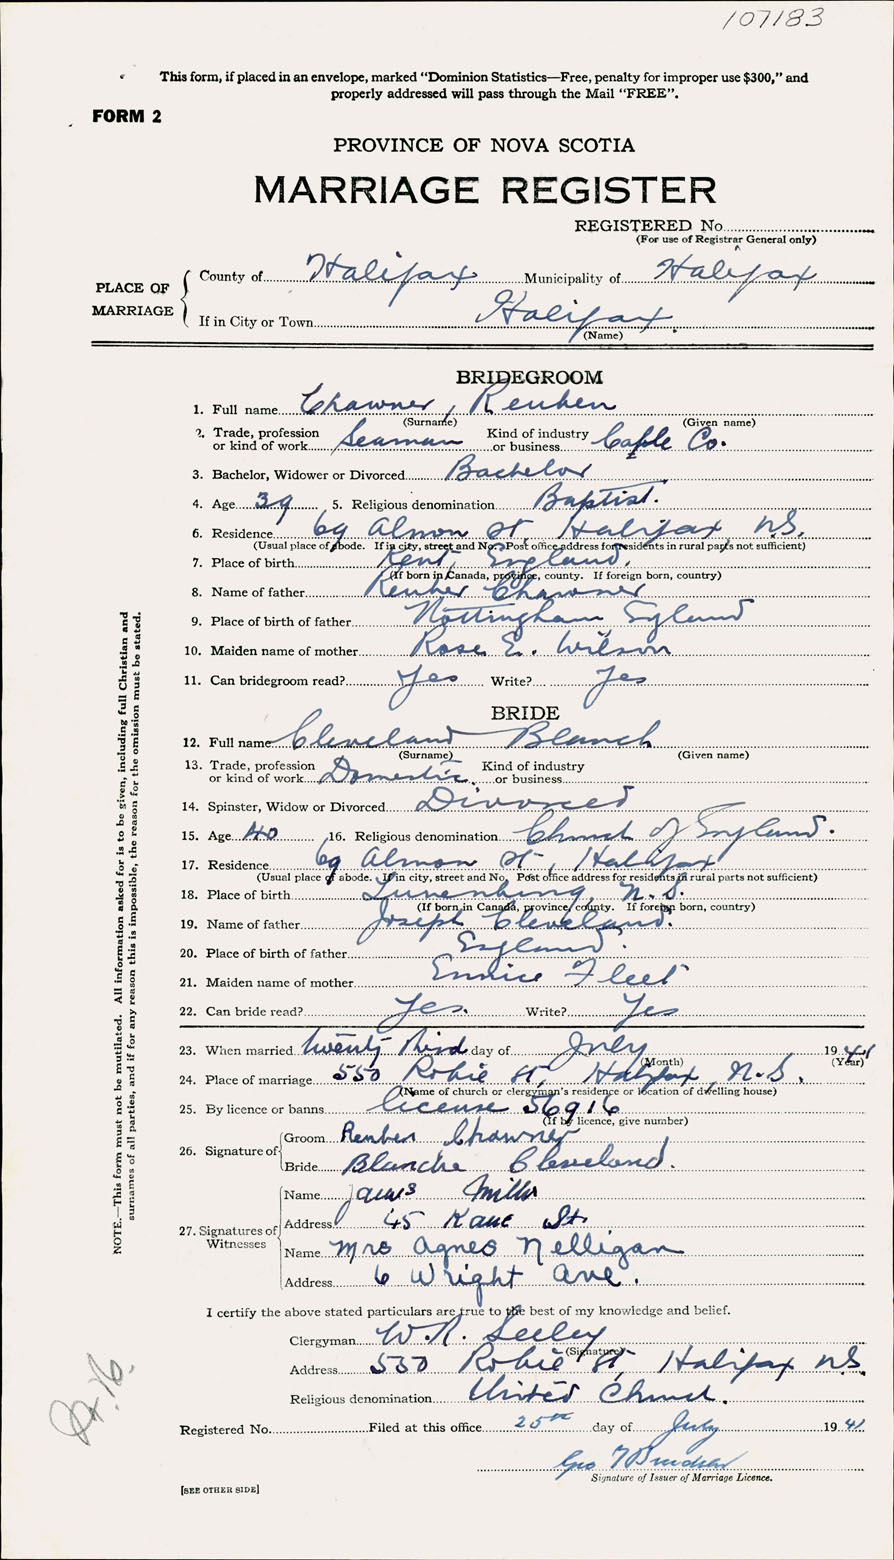 107183
This form, if placed in an envelope, marked “Dominion Statistics—Free, penalty for improper use $300,” and
properly addressed will pass through the Mail “FREE”.
FORM 2
PROVINCE OF NOVA SCOTIA
MARRIAGE REGISTER
REGISTERED No.
(For use of Registrar General only)
PLACE OF MARRIAGE
County of Halifax Municipality of Halifax
If in City or Town Halifax.
(Name)
BRIDEGROOM
1. Full name Chawner, Reuben
(Surname) (Given name)
2. Trade, profession or kind of work Seaman Kind of industry or business Cable Co.
3. Bachelor, Widower or Divorced Bachelor
4. Age 39 5. Religious denomination Baptist.
6. Residence 69 Almon St, Halifax, N.S.
(Usual place of abode. If in city, street and No. Post office address for residents in rural parts not sufficient)
7. Place of birth Kent, England.
(If born in Canada, province, county. If foreign born, country)
8. Name of father Reuben Chawner
9. Place of birth of father Nottingham England
10. Maiden name of mother Rose E. Wilson
11. Can bridegroom read? Yes Write? Yes
BRIDE
12. Full name Cleveland Blanch
(Surname) (Given name)
13. Trade, profession or kind of work Domestic. Kind of industry or business
14. Spinster, Widow or Divorced Divorced
15. Age 40 16. Religious denomination Church of England.
17. Residence 69 Almon St, Halifax
(Usual place of abode. If in city, street and No. Post office address for residents in rural parts not sufficient)
18. Place of birth Lunenburg, N.S.
(If born in Canada, province, county. If foreign born, country)
19. Name of father Joseph Cleveland.
20. Place of birth of father England.
21. Maiden name of mother Eunice Fleet
22. Can bride read? Yes. Write? Yes
23. When married twenty third day of July 1941
(Month) (Year)
24. Place of marriage 550 Robie St, Halifax, N.S.
(Name of church or clergyman's residence or location of dwelling house)
25. By licence or banns license 56916
(If by licence, give number)
26. Signature of
Groom Reuben Chawner
Bride Blanche Cleveland.
27. Signatures of Witnesses
Name James Miller
Address 45 Kane St
Name Mrs Agnes Nelligan
Address 6 Wright Ave.
I certify the above stated particulars are true to the best of my knowledge and belief.
Clergyman W. R. Seeley
(Signature)
Address 550 Robie St, Halifax N.S.
Religious denomination United Church.
Registered No. Filed at this office 25th day of July 1941
Geo
Signature of Issuer of Marriage Licence.
[SEE OTHER SIDE]
NOTE.—This form must not be mutilated. All information asked for is to be given, including full Christian and
surnames of all parties, and if for any reason this is impossible, the reason for the omission must be stated.